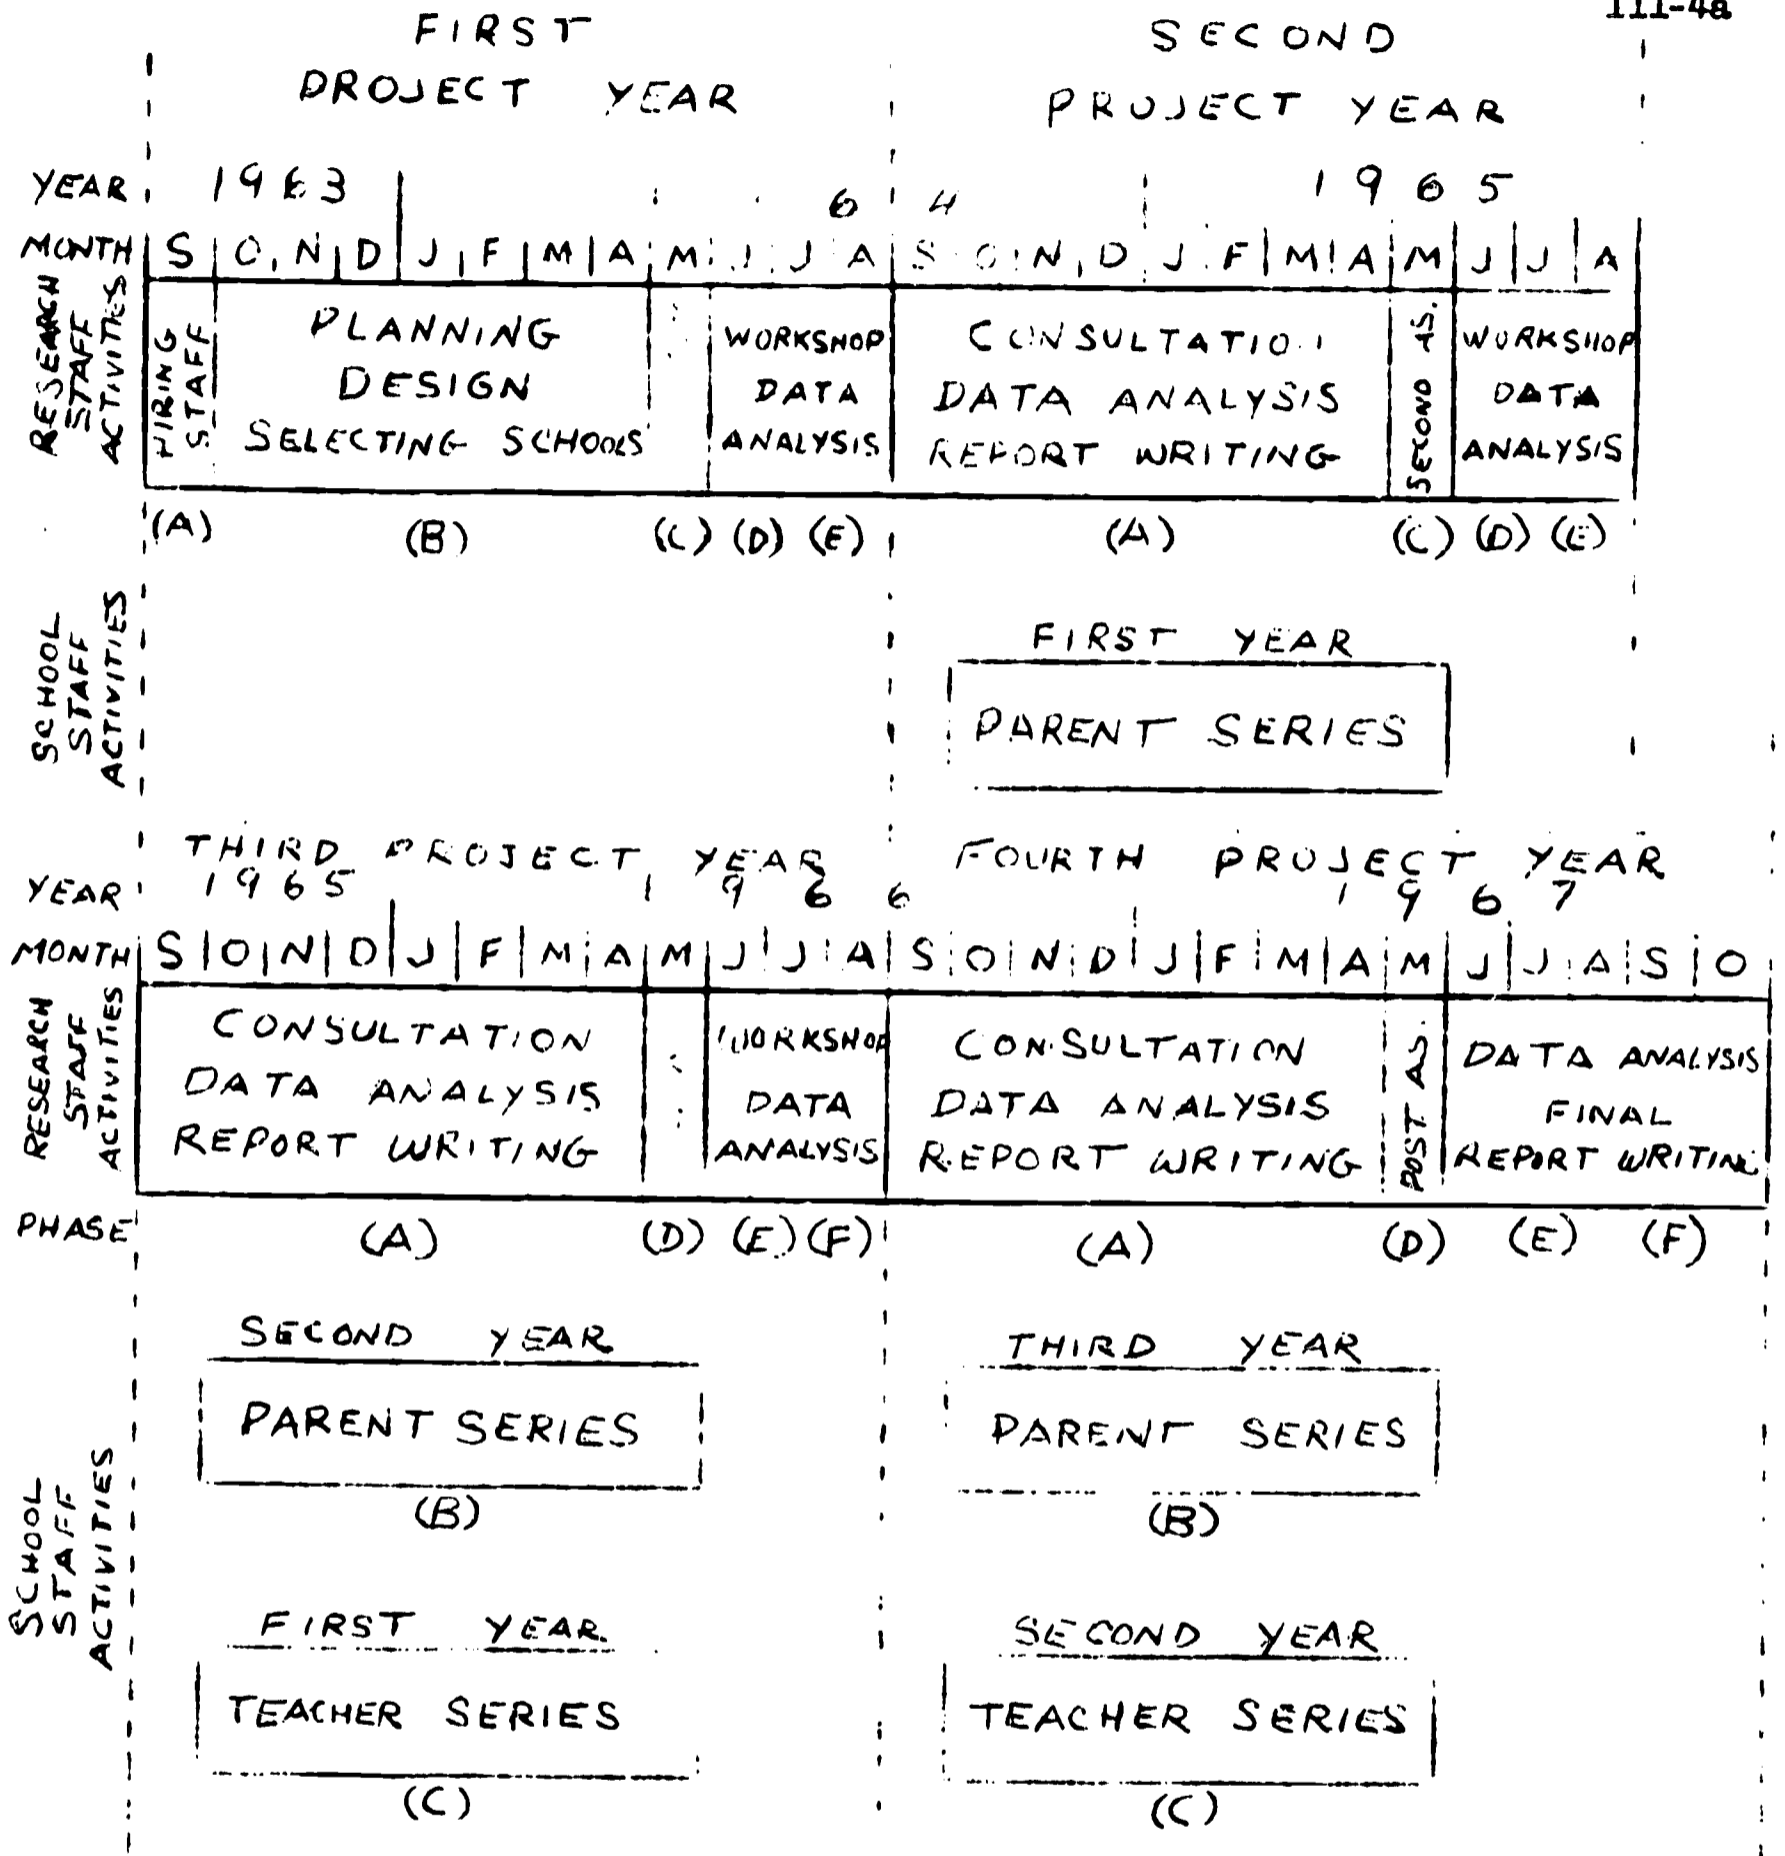 III-4a
FIRST
PROJECT YEAR
SECOND
PROJECT YEAR
YEAR 1963 6 4 1965
MONTH S O N D J F M A M J J A S O N D J F M A M J J A
RESEARCH
STAFF
ACTIVITIES
HIRING
STAFF
PLANNING
DESIGN
SELECTING SCHOOLS
WORKSHOP
DATA
ANALYSIS
CONSULTATION
DATA ANALYSIS
REPORT WRITING
SECOND AS.
WORKSHOP
DATA
ANALYSIS
(A) (B) (C) (D) (E) (A) (C) (D) (E)
SCHOOL
STAFF
ACTIVITIES
FIRST YEAR
PARENT SERIES
THIRD PROJECT YEAR FOURTH PROJECT YEAR
YEAR 1965 1 9 6 6 1 9 6 7
MONTH S O N D J F M A M J J A S O N D J F M A M J J A S O
RESEARCH
STAFF
ACTIVITIES
CONSULTATION
DATA ANALYSIS
REPORT WRITING
WORKSHOP
DATA
ANALYSIS
CONSULTATION
DATA ANALYSIS
REPORT WRITING
POST AS.
DATA ANALYSIS
FINAL
REPORT WRITING
PHASE (A) (D) (E) (F) (A) (D) (E) (F)
SCHOOL
STAFF
ACTIVITIES
SECOND YEAR
PARENT SERIES
(B)
THIRD YEAR
PARENT SERIES
(B)
FIRST YEAR
TEACHER SERIES
(C)
SECOND YEAR
TEACHER SERIES
(C)